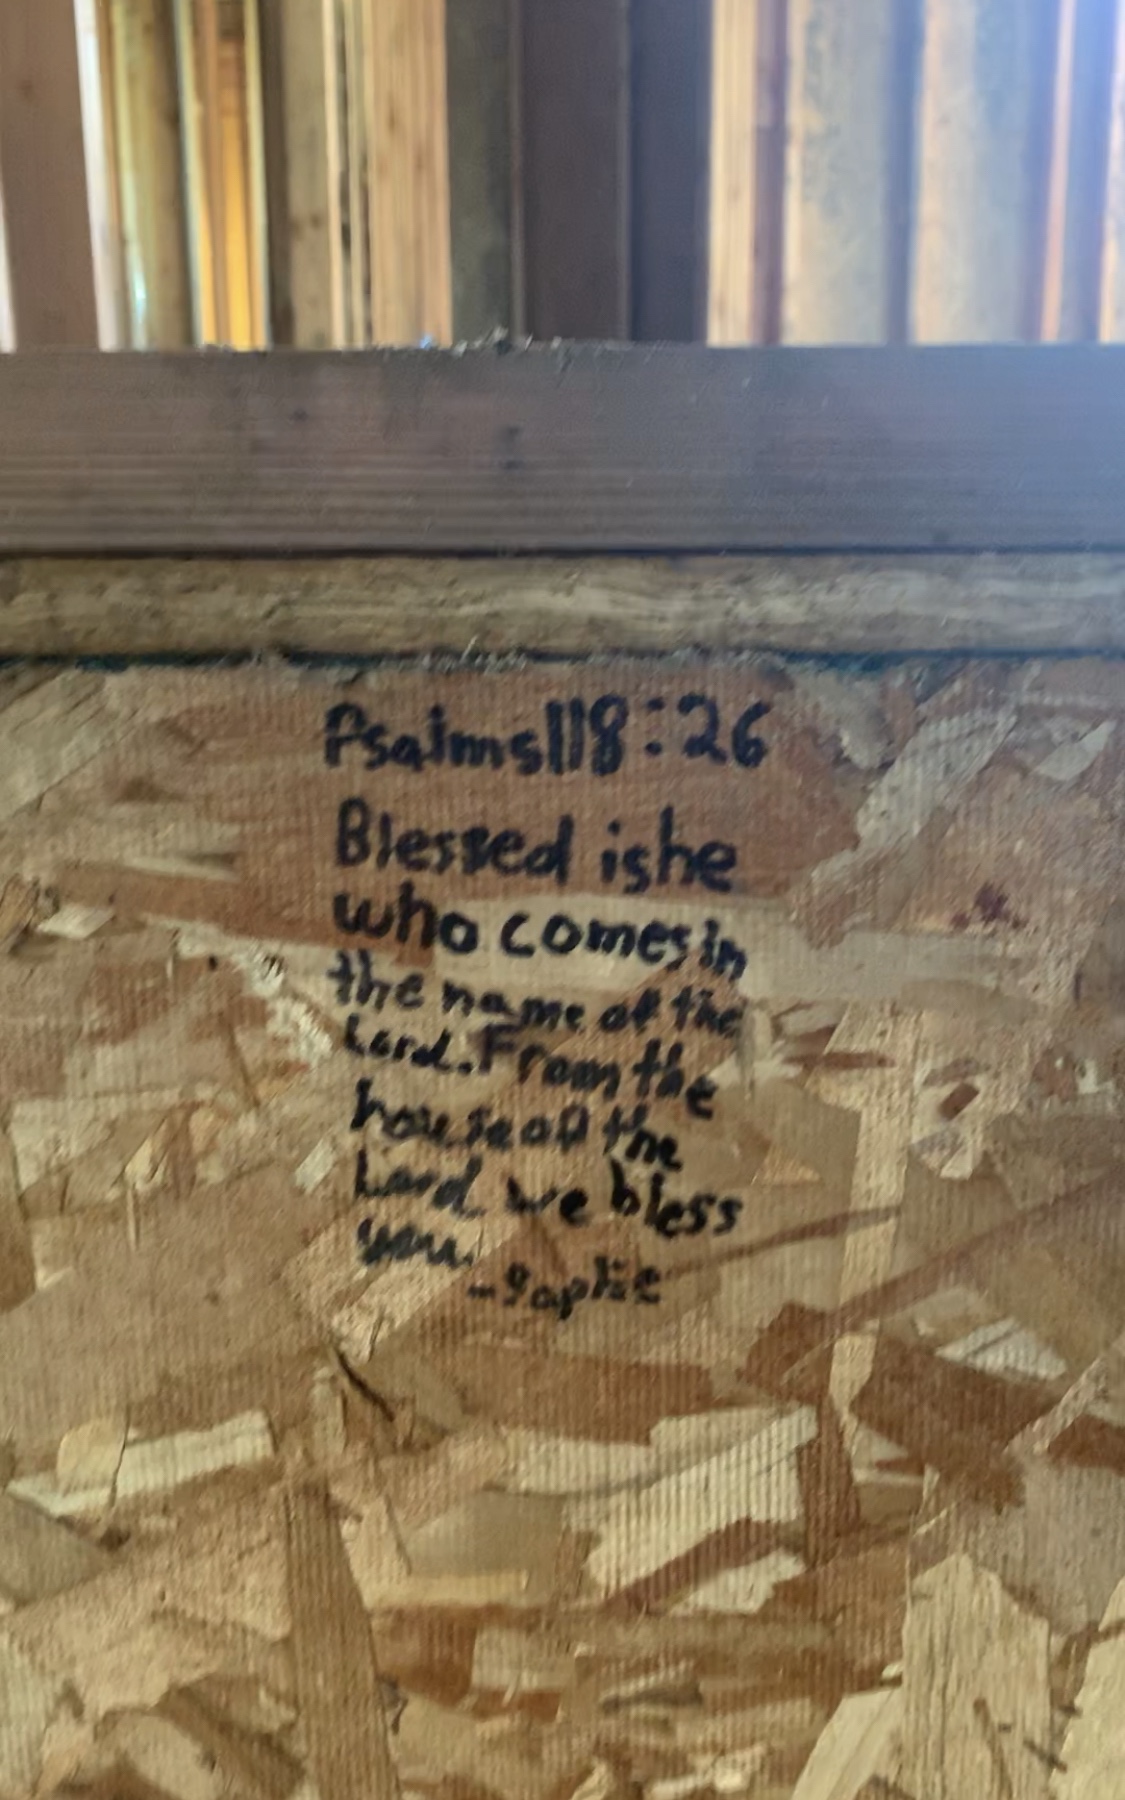 Psalms118:26
Blessed is he
who comes in
the name of the
Lord. From the
house of the
Lord we bless
you.